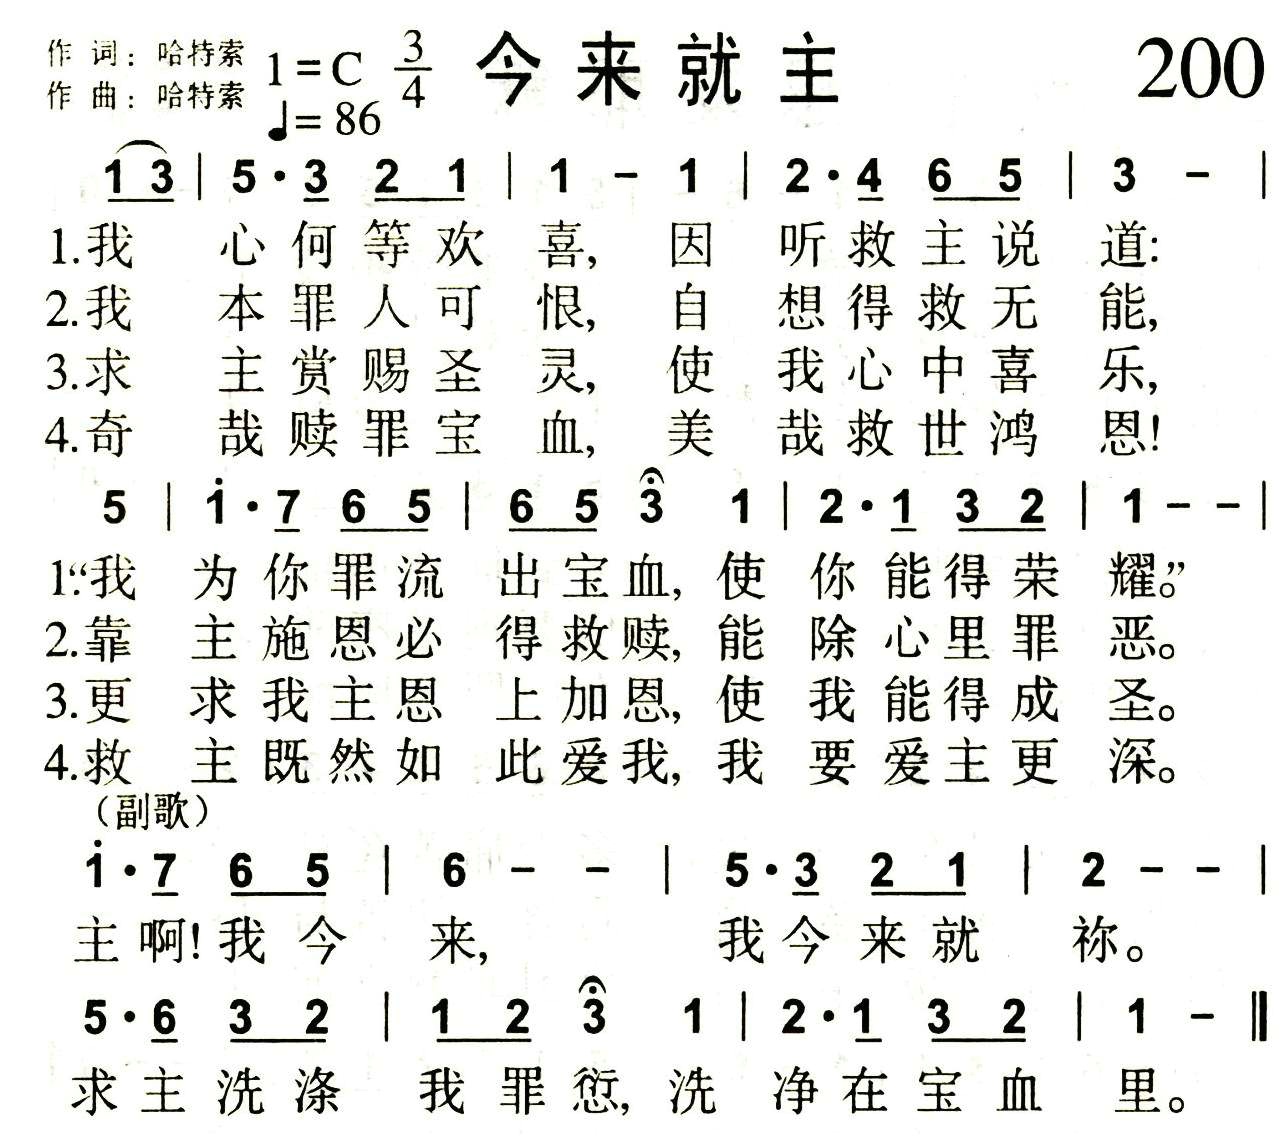 作 词：哈特索 1=C 3/4 今来就主 200
作 曲：哈特索 ♩=86
1 3 | 5 · 3 2 1 | 1 － 1 | 2 · 4 6 5 | 3 － |
1.我 心何等欢 喜, 因 听救主说 道:
2.我 本罪人可 恨, 自 想得救无 能,
3.求 主赏赐圣 灵, 使 我心中喜 乐,
4.奇 哉赎罪宝 血, 美 哉救世鸿 恩!
5 | i · 7 6 5 | 6 5 3 1 | 2 · 1 3 2 | 1 － － |
1.“我 为你罪流 出宝血, 使 你能得荣 耀。”
2.靠 主施恩必 得救赎, 能 除心里罪 恶。
3.更 求我主恩 上加恩, 使 我能得成 圣。
4.救 主既然如 此爱我, 我 要爱主更 深。
（副歌）
i · 7 6 5 | 6 － － | 5 · 3 2 1 | 2 － － |
主啊!我今 来, 我今来就 祢。
5 · 6 3 2 | 1 2 3 1 | 2 · 1 3 2 | 1 － ‖
求主洗涤 我罪愆, 洗 净在宝血 里。